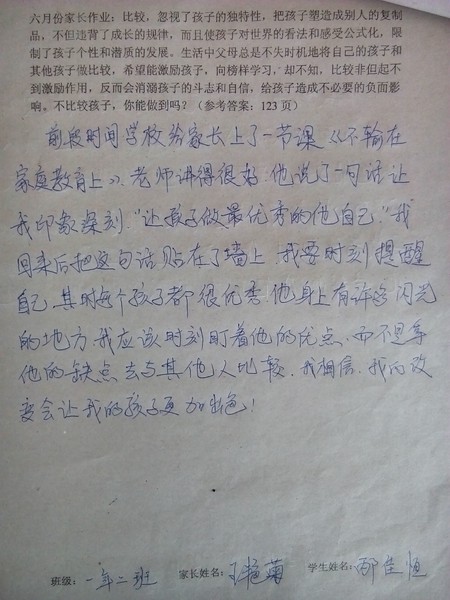 六月份家长作业：比较，忽视了孩子的独特性，把孩子塑造成别人的复制
品，不但违背了成长的规律，而且使孩子对世界的看法和感受公式化，限
制了孩子个性和潜质的发展。生活中父母总是不失时机地将自己的孩子和
其他孩子做比较，希望能激励孩子，向榜样学习，却不知，比较非但起不
到激励作用，反而会消溺孩子的斗志和自信，给孩子造成不必要的负面影
响。不比较孩子，你能做到吗？（参考答案：123 页）
前段时间学校给家长上了一节课《不输在
家庭教育上》. 老师讲得很好. 他说了一句话让
我印象深刻."让孩子做最优秀的他自己."我
回来后把这句话贴在了墙上. 我要时刻提醒
自己. 其时每个孩子都很优秀. 他身上有许多闪光
的地方. 我应该时刻盯着他的优点. 而不是拿
他的缺点去与其他人比较. 我相信. 我的改
变会让我的孩子更加出色！
班级：一年二班 家长姓名：王艳菊 学生姓名：佳恒